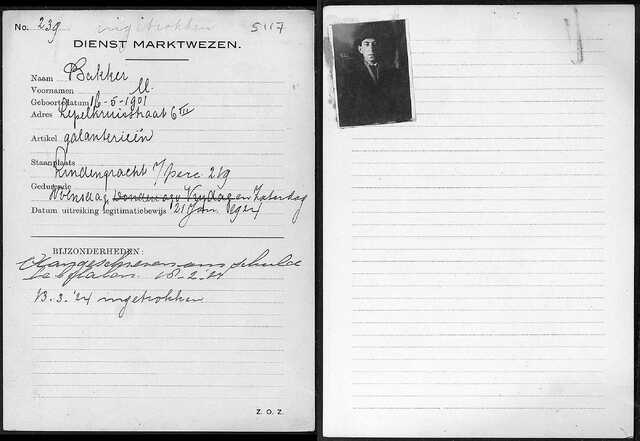 No. 239 ingetrokken 5117
DIENST MARKTWEZEN.
Naam Bakker
Voornamen M.
Geboortedatum 16-5-1901
Adres Lepelkruisstraat 6 III
Artikel galanterieën
Staanplaats
Lindengracht t/perc. 289
Gedurende
Woensdag, Donderdag Vrijdag en Zaterdag
Datum uitreiking legitimatiebewijs 21 Jan.
BIJZONDERHEDEN:
Aangeschreven om schuld
te betalen 18-2-'24
13.3.'24 ingetrokken
Z. O. Z.